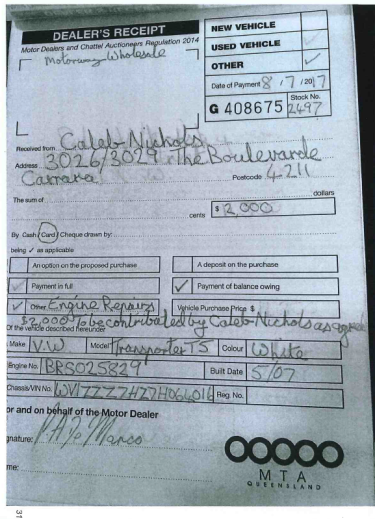 DEALER'S RECEIPT
Motor Dealers and Chattel Auctioneers Regulation 2014
Motorway Wholesale
NEW VEHICLE
USED VEHICLE ✓
OTHER ✓
Date of Payment 8 / 7 / 2017
G 408675
Stock No.
2497
Received from Caleb Nichols
Address 3026/3029 The Boulevarde
Carrara Postcode 4211
The sum of dollars
cents $ 2,000
By Cash / Card / Cheque drawn by:
being ✓ as applicable
An option on the proposed purchase
A deposit on the purchase
✓ Payment in full
✓ Payment of balance owing
✓ Other Engine Repairs
Vehicle Purchase Price $
$2,000 to be contributed by Caleb Nichols as agreed
Of the vehicle described hereunder
Make V.W Model Transporter T5 Colour White
Engine No. BRS025829 Built Date 5/07
Chassis/VIN No. WV1ZZZ7HZ7H064016 Reg. No.
or and on behalf of the Motor Dealer
gnature:
me:
MTA
QUEENSLAND